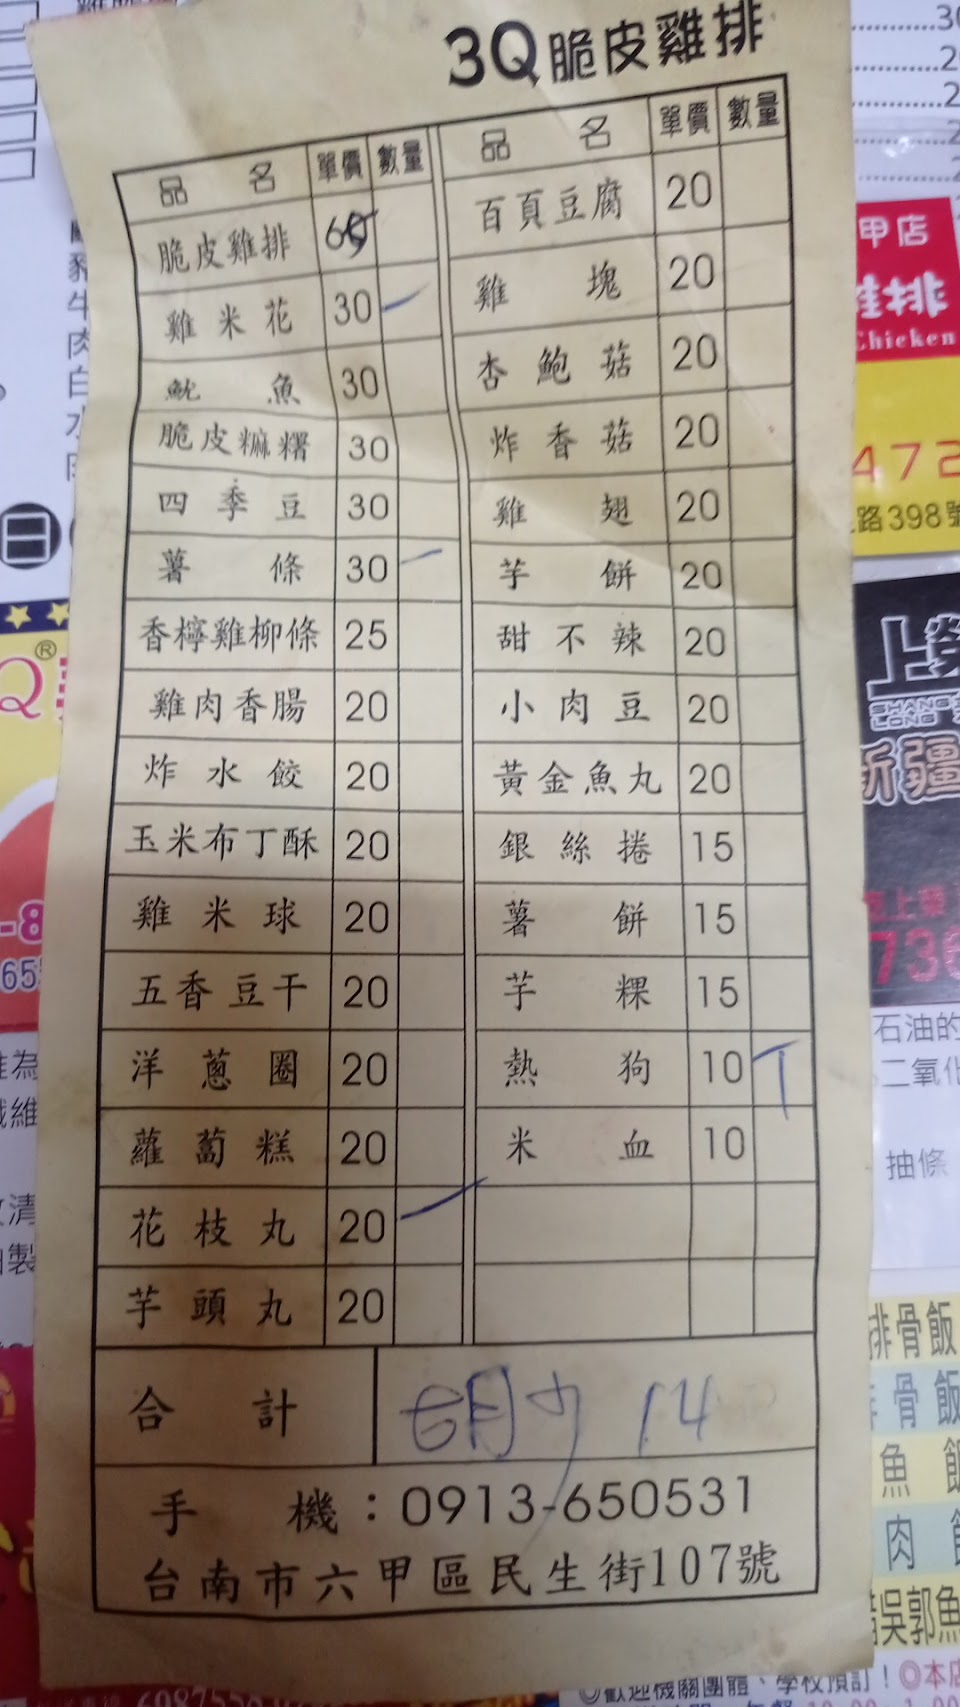 3Q脆皮雞排
品名 單價 數量
脆皮雞排 65
雞米花 30
魷魚 30
脆皮糍糬 30
四季豆 30
薯條 30
香檸雞柳條 25
雞肉香腸 20
炸水餃 20
玉米布丁酥 20
雞米球 20
五香豆干 20
洋蔥圈 20
蘿蔔糕 20
花枝丸 20
芋頭丸 20
品名 單價 數量
百頁豆腐 20
雞塊 20
杏鮑菇 20
炸香菇 20
雞翅 20
芋餅 20
甜不辣 20
小肉豆 20
黃金魚丸 20
銀絲捲 15
薯餅 15
芋粿 15
熱狗 10
米血 10
合計
手機：0913-650531
台南市六甲區民生街107號
甲店
雞排
Chicken
472
路398號
新疆
736
石油的
二氧化
抽條
排骨飯
骨飯
魚
肉
吳郭魚
◎歡迎機關團體、學校預訂！◎本店